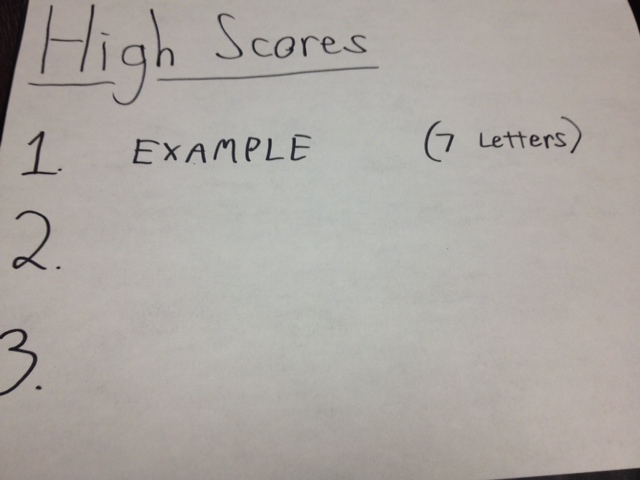 High Scores
1. EXAMPLE (7 Letters)
2.
3.